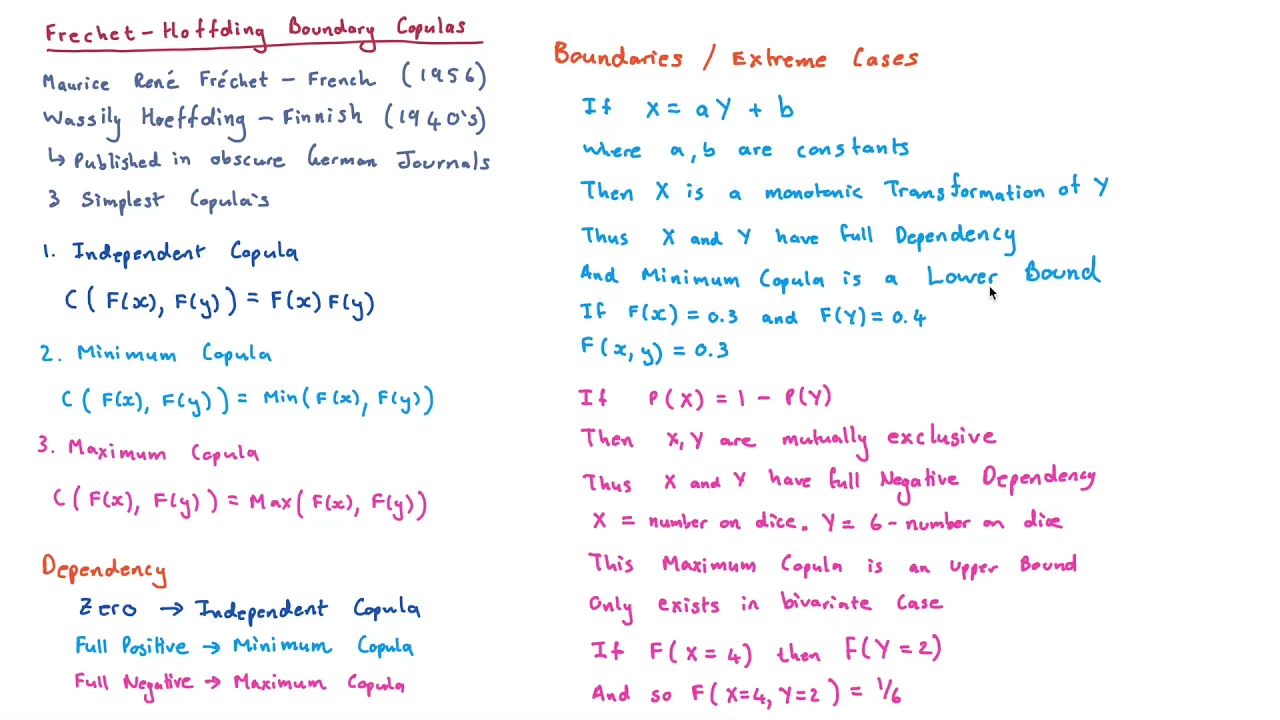 Frechet - Hoffding Boundary Copulas
Maurice René Fréchet - French (1956)
Wassily Hoeffding - Finnish (1940's)
↳ Published in obscure German Journals
3 Simplest Copula's
1. Independent Copula
C( F(x), F(y) ) = F(x) F(y)
2. Minimum Copula
C( F(x), F(y) ) = Min( F(x), F(y) )
3. Maximum Copula
C( F(x), F(y) ) = Max( F(x), F(y) )
Dependency
Zero → Independent Copula
Full Positive → Minimum Copula
Full Negative → Maximum Copula
Boundaries / Extreme Cases
If X = aY + b
where a, b are constants
Then X is a monotonic Transformation of Y
Thus X and Y have full Dependency
And Minimum Copula is a Lower Bound
If F(x) = 0.3 and F(Y) = 0.4
F(x, y) = 0.3
If P(X) = 1 - P(Y)
Then X, Y are mutually exclusive
Thus X and Y have full Negative Dependency
X = number on dice. Y = 6 - number on dice
This Maximum Copula is an Upper Bound
Only exists in bivariate Case
If F(X = 4) then F(Y = 2)
And so F(X=4, Y=2) = 1/6